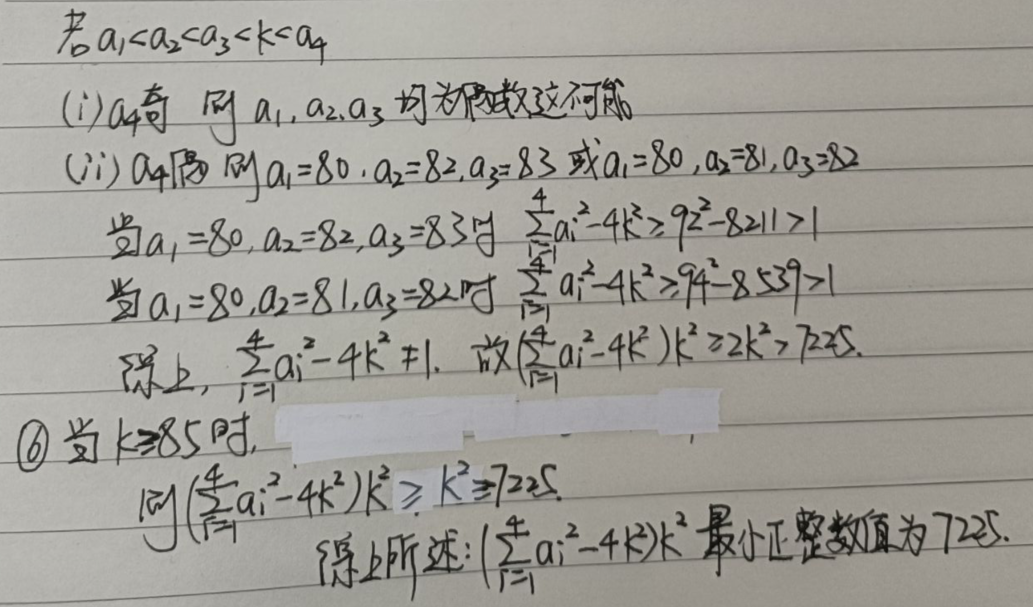 若a₁<a₂<a₃<k<a₄
(i) a₄奇 则 a₁,a₂,a₃ 均为偶数这不可能
(ii) a₄偶 则a₁=80,a₂=82,a₃=83 或a₁=80,a₂=81,a₃=82
当a₁=80,a₂=82,a₃=83时 ∑_{i=1}^{4}aᵢ²-4k²≥92²-8211>1
当a₁=80,a₂=81,a₃=82时 ∑_{i=1}^{4}aᵢ²-4k²≥94²-8539>1
综上, ∑_{i=1}^{4}aᵢ²-4k²≠1. 故(∑_{i=1}^{4}aᵢ²-4k²)k²≥2k²>7225.
⑥当k≥85时,
则(∑_{i=1}^{4}aᵢ²-4k²)k²≥k²≥7225.
综上所述:(∑_{i=1}^{4}aᵢ²-4k²)k² 最小正整数值为7225.